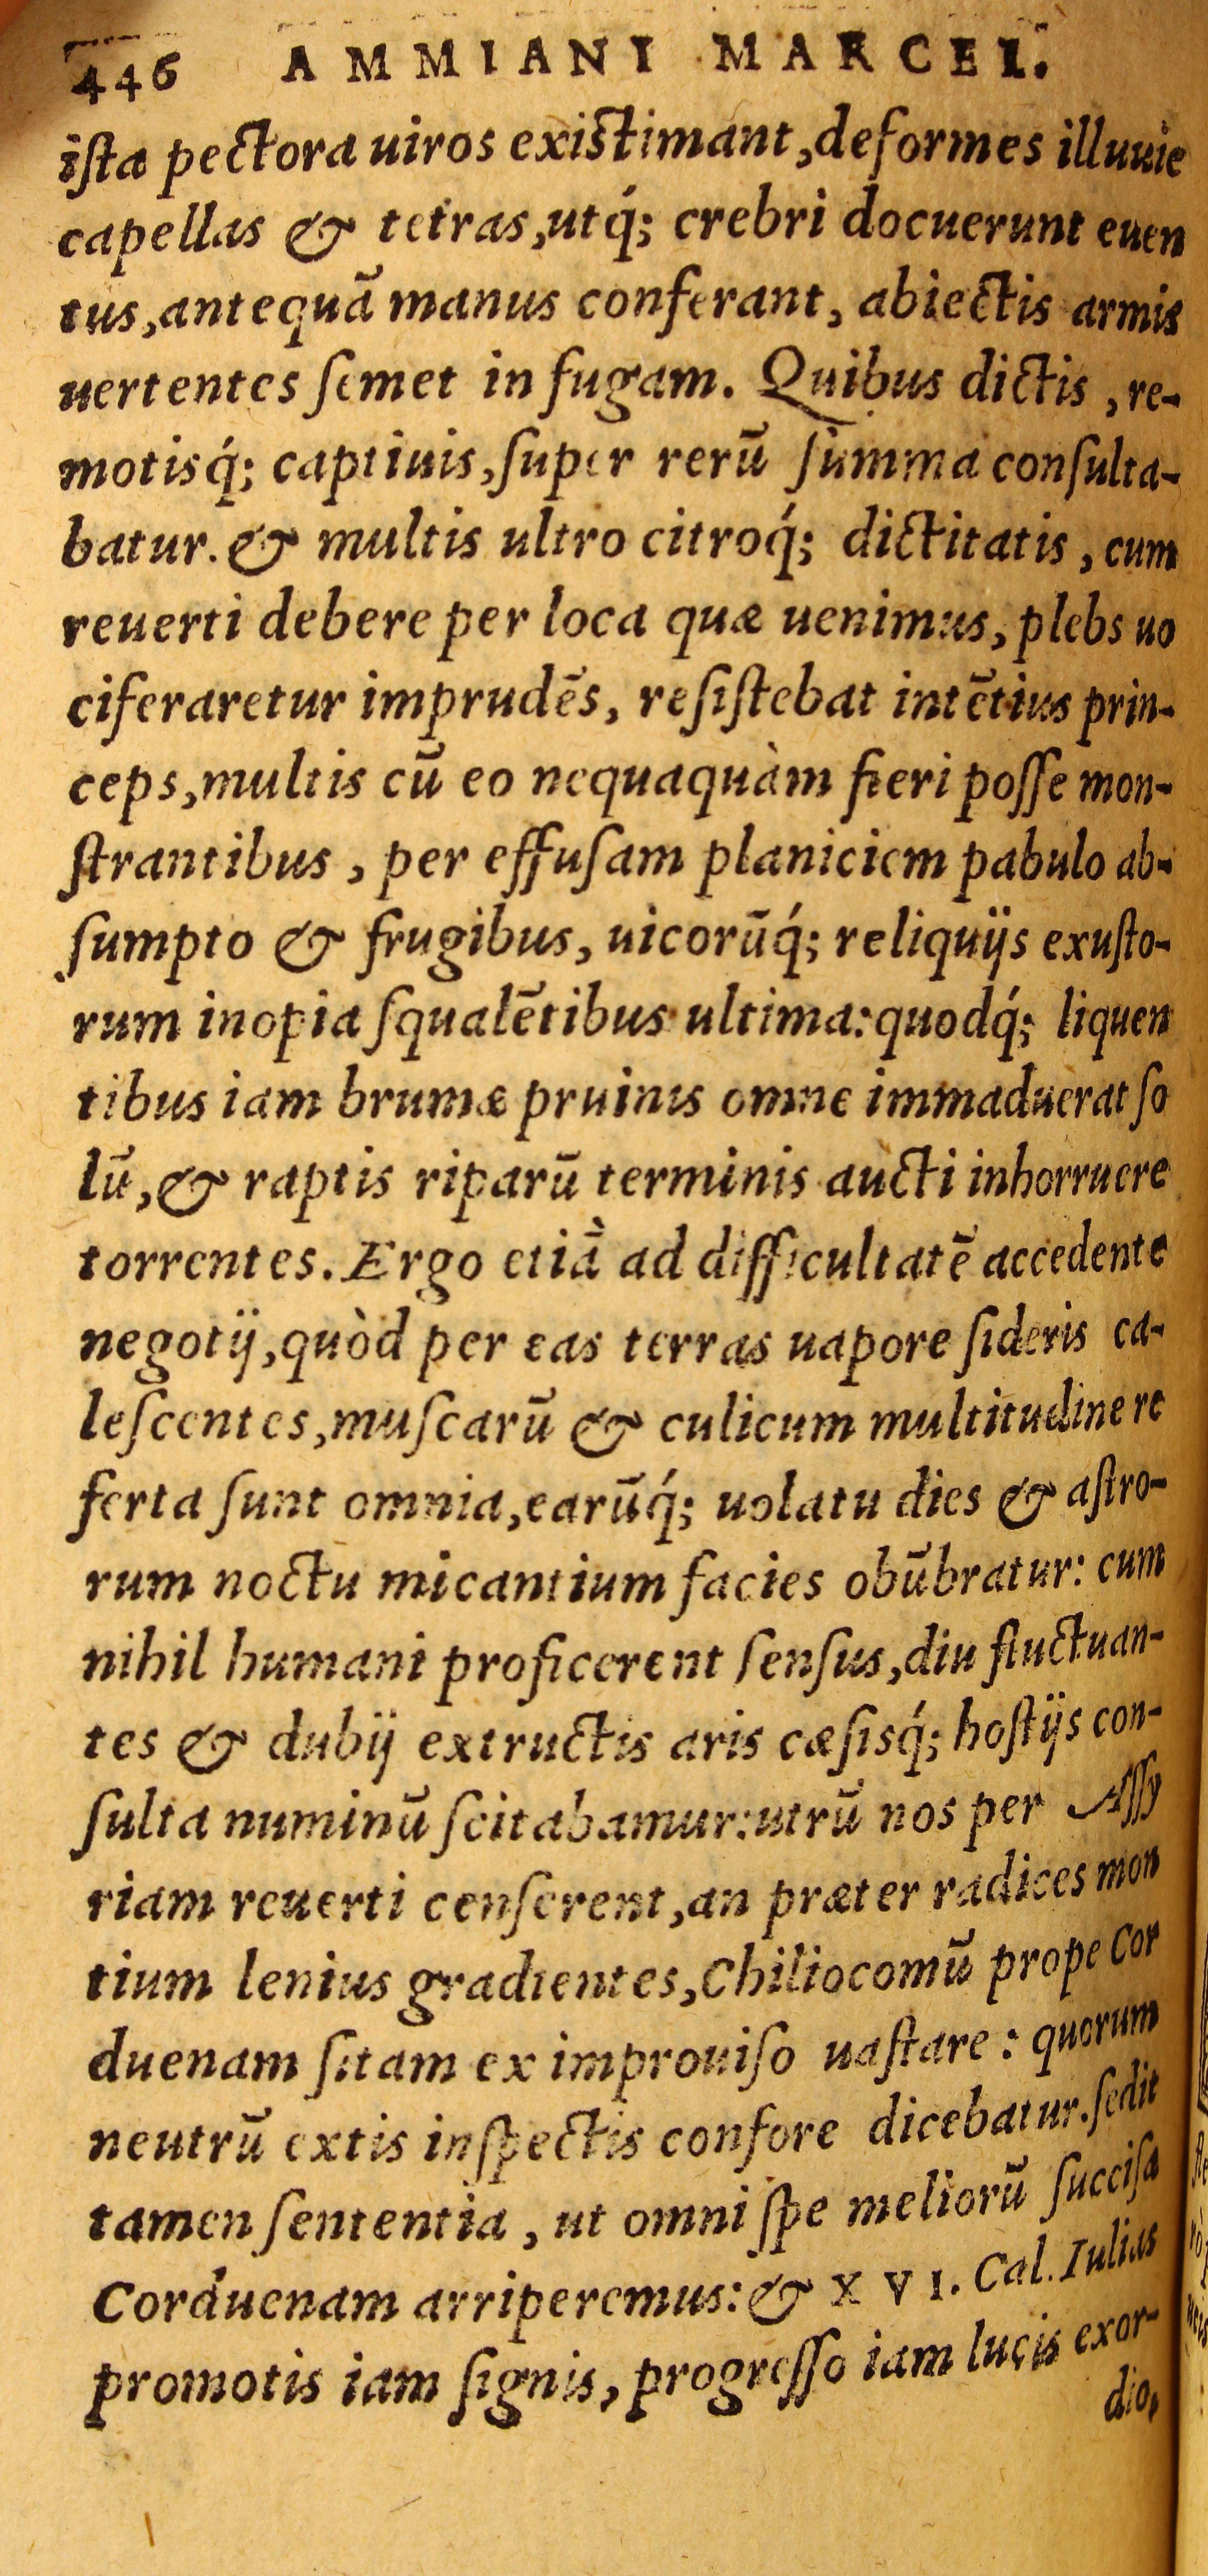 446 AMMIANI MARCEL.
iſta pectora uiros existimant, deformes illuuie
capellas & tetras, utq́; crebri docuerunt euen
tus, antequã manus conferant, abiectis armis
uertentes ſemet in fugam. Quibus dictis, re-
motisq́; captiuis, ſuper rerũ ſumma conſulta-
batur. & multis ultro citroq́; dictitatis, cum
reuerti debere per loca quæ uenimus, plebs uo
ciferaretur imprudẽs, reſiſtebat intẽtius prin-
ceps, multis cũ eo nequaquàm fieri poſſe mon-
ſtrantibus, per effuſam planiciem pabulo ab-
ſumpto & frugibus, uicorũq́; reliquijs exuſto-
rum inopia ſqualẽtibus ultima: quodq́; liquen
tibus iam brumæ pruinis omne immaduerat ſo
lũ, & raptis riparũ terminis aucti inhorruere
torrentes. Ergo etiã ad difficultatẽ accedente
negotij, quòd per eas terras uapore ſideris ca-
leſcentes, muſcarũ & culicum multitudine re
ferta ſunt omnia, earũq́; uolatu dies & aſtro-
rum noctu micantium facies obũbratur: cum
nihil humani proficerent ſenſus, diu fluctuan-
tes & dubij extructis aris cæſisq́; hoſtijs con-
ſulta numinũ ſcitabamur: utrũ nos per Aſſy
riam reuerti cenſerent, an præter radices mon
tium lenius gradientes, Chiliocomũ prope Cor
duenam ſitam ex improuiſo uaſtare: quorum
neutrũ extis inſpectis confore dicebatur. ſedit
tamen ſententia, ut omni ſpe meliorũ ſucciſa
Corduenam arriperemus: & XVI. Cal. Iulias
promotis iam ſignis, progreſſo iam lucis exor-
dio,